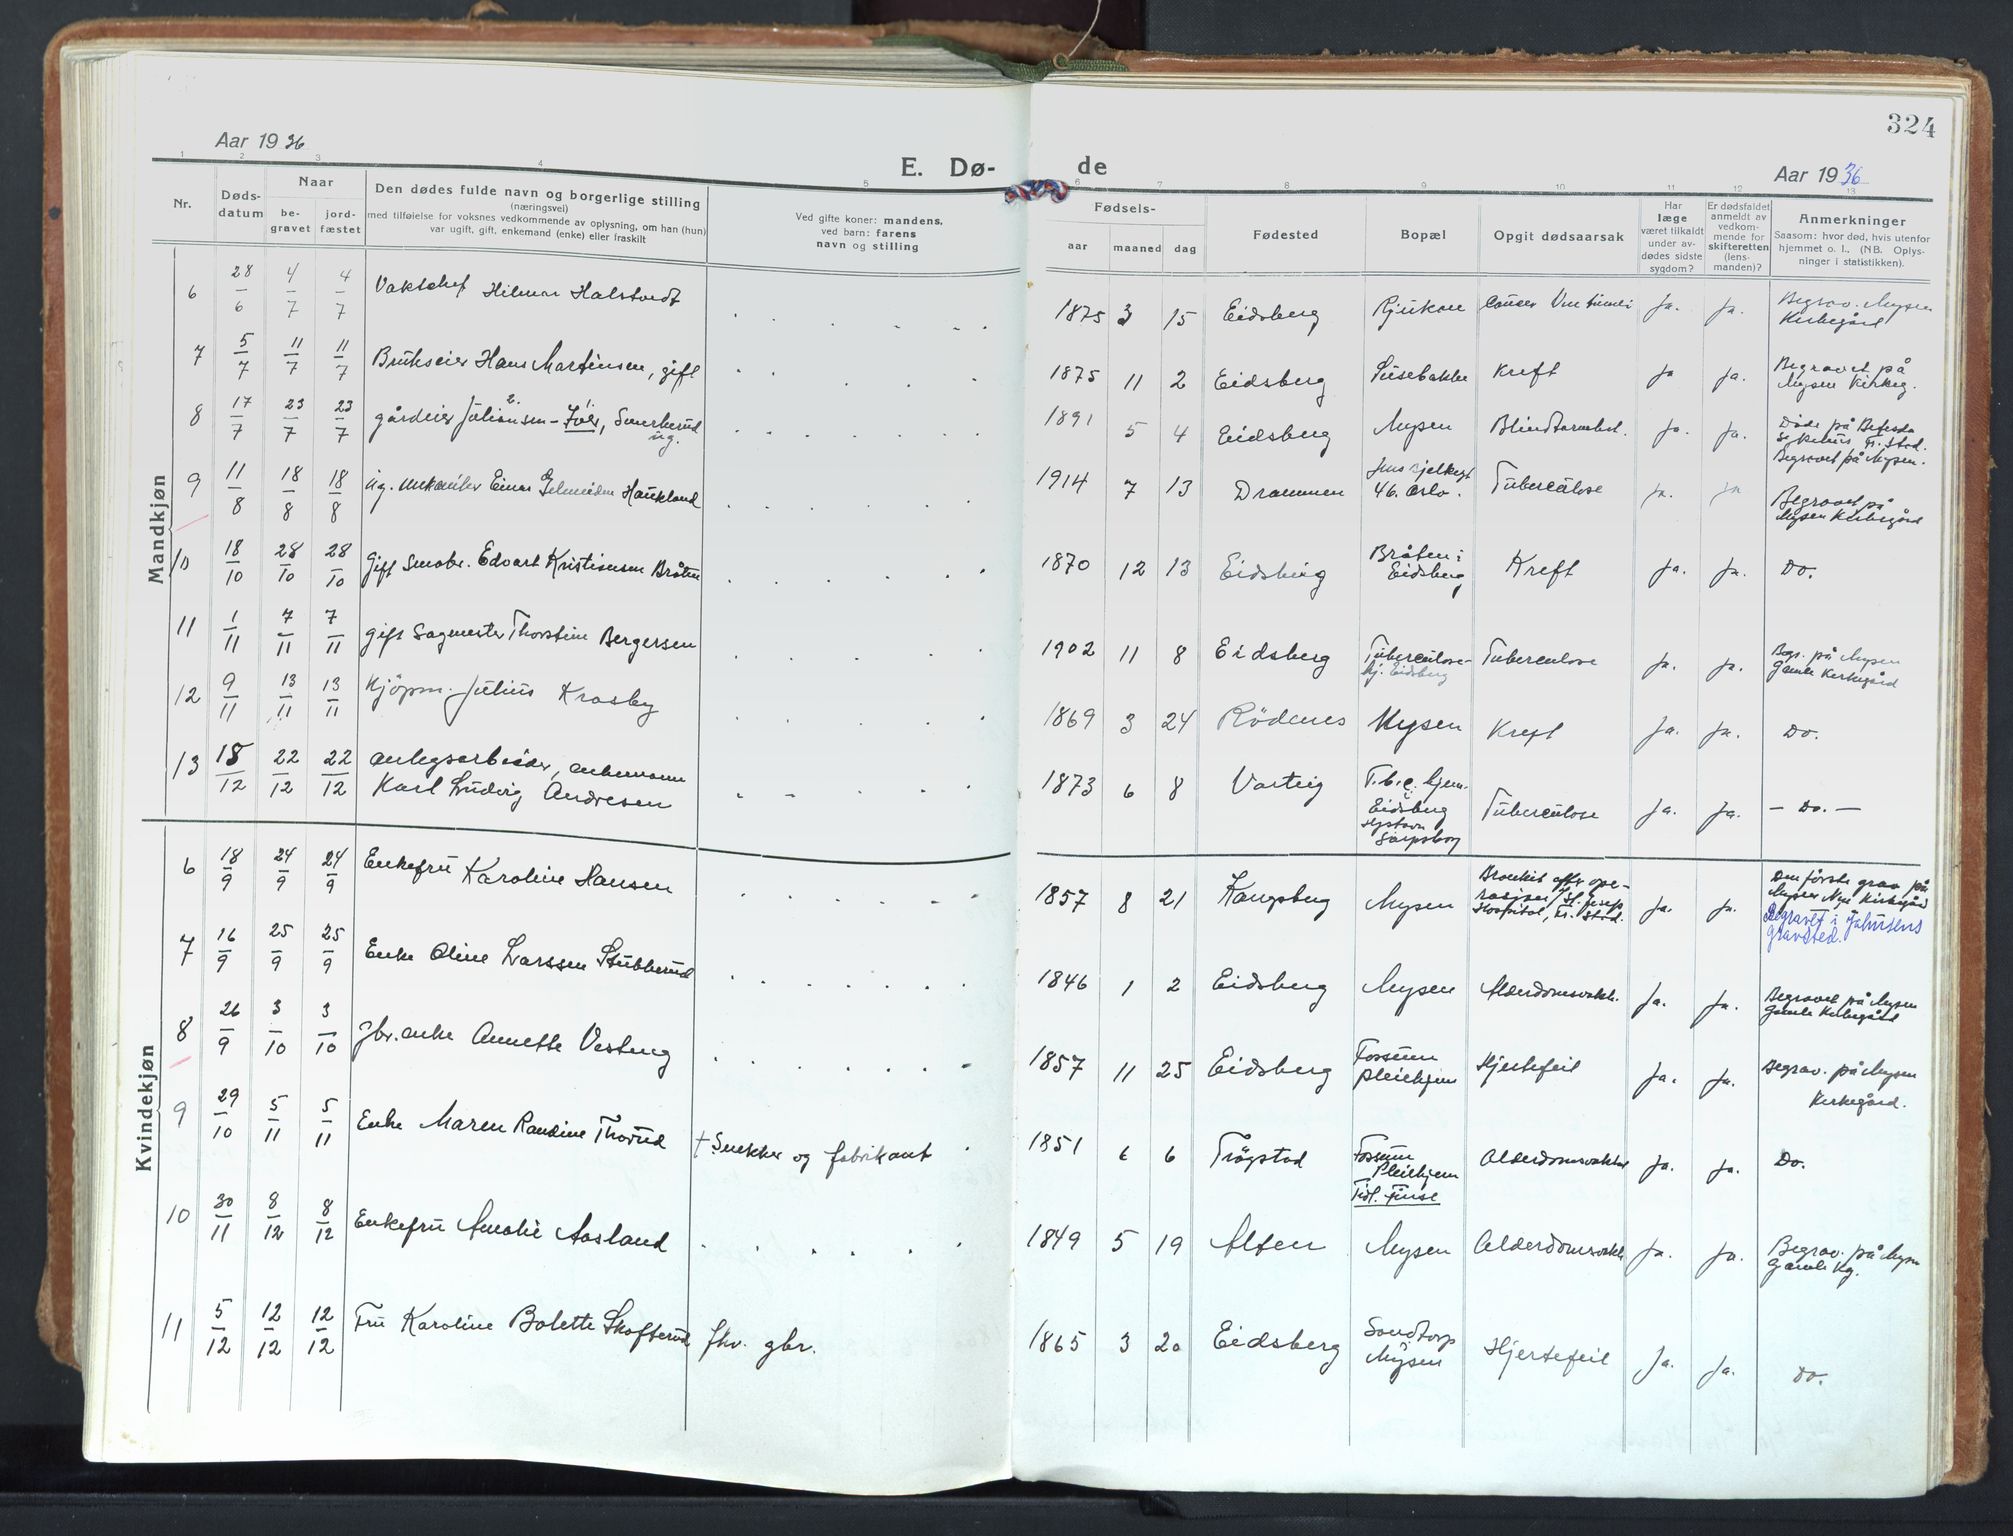 324
Aar 1936
E. Dø-
de
Aar 1936
1 2 3 4 5 6 7 8 9 10 11 12 13
Nr.
Døds-
datum
Naar
be-
gravet
jord-
fæstet
Den dødes fulde navn og borgerlige stilling
(næringsvei)
med tilføielse for voksnes vedkommende av oplysning, om han (hun)
var ugift, gift, enkemand (enke) eller fraskilt
Ved gifte koner: mandens,
ved barn: farens
navn og stilling
Fødsels-
aar
maaned
dag
Fødested
Bopæl
Opgit dødsaarsak
Har
læge
været tilkaldt
under av-
dødes sidste
sygdom?
Er dødsfaldet
anmeldt av
vedkom-
mende for
skifteretten
(lens-
manden)?
Anmerkninger
Saasom: hvor død, hvis utenfor
hjemmet o. l., (NB. Oplys-
ninger i statistikken).
Mandkjøn
6 28/6 4/7 4/7 Vaktchef Hilmar Halstvedt 1875 3 15 Eidsberg Rjukan Cancer Ventriculi Ja. Ja. Begrav. Mysen
Kirkegård
7 5/7 11/7 11/7 Brukseier Hans Martinsen, gift 1875 11 2 Eidsberg Susebakke Kreft Ja Ja. Begravet på
Mysen Kirkeg.
8 17/7 23/7 23/7 gårdeier Julius E. Johansen, Smerkerud
ug. 1891 5 4 Eidsberg Mysen Blindtarmbet. Ja. Ja. Døde på Betesda
Sykehus Fr. Stad.
Begravet på Mysen.
9 11/8 18/8 18/8 ug. mekaniker Einar Haukland 1914 7 13 Drammen Jens Bjelkesgt
46. Oslo. Tuberculose Ja. Ja Begravet på
Mysen Kirkegård
10 18/10 28/10 28/10 Gift Småbr. Edvart Kristiansen Bråten 1870 12 13 Eidsberg Bråten i
Eidsberg Kreft Ja. Ja. Do.
11 1/11 7/11 7/11 gift Sagmester Thorstein Bergersen 1902 11 8 Eidsberg Tuberculose-
hj. Eidsberg Tuberculose Ja. Ja. Begr. på Mysen
Gamle Kirkegård
12 9/11 13/11 13/11 Kjöpm. Julius Krosby 1869 3 24 Rödenes Mysen Kreft Ja. Ja. Do.
13 15/12 22/12 22/12 anlegsarbeider, enkemann
Karl Ludvig Andresen 1873 6 8 Varteig T.b.c. hjem.
i
Eidsberg
Sarpsborg Tuberculose Ja. Ja. – Do. –
Kvindekjøn
6 18/9 24/9 24/9 Enkefru Karoline Hansen 1857 8 21 Kongsberg Mysen Bronkit efter ope-
rasjon / St. Josep
Hospital, Fr. Stad. Ja. Ja. Den første grav på
Mysen Nye Kirkegård
Begravet i Johnsens
gravsted.
7 16/9 25/9 25/9 Enke Oline Larssen Stubberud 1846 1 2 Eidsberg Mysen Alderdomsvakh. Ja. Ja. Begravet på Mysen
Gamle Kirkegård
8 26/9 3/10 3/10 Gbr. enke Annette Vesteng 1857 11 25 Eidsberg Fossum
Pleiehjem Hjertefeil Ja. Ja. Begrav. på Mysen
Kirkegård.
9 29/10 5/11 5/11 Enke Maren Randine Thorud † Snekker og fabrikant 1851 6 6 Trögstad Fossum
Pleiehjem
Tidl. Finse Alderdomsvakhet Ja. Ja. Do.
10 30/11 8/12 8/12 Enkefru Amalie Aasland 1849 5 19 Alten Mysen Alderdomsvakh Ja. Ja. Begrav. på Mysen
Gamle Kg.
11 5/12 12/12 12/12 Fru Karoline Bolette Skofterud fhv. gbr. 1865 3 20 Eidsberg Sandtorp
Mysen Hjertefeil Ja. Ja. Do.